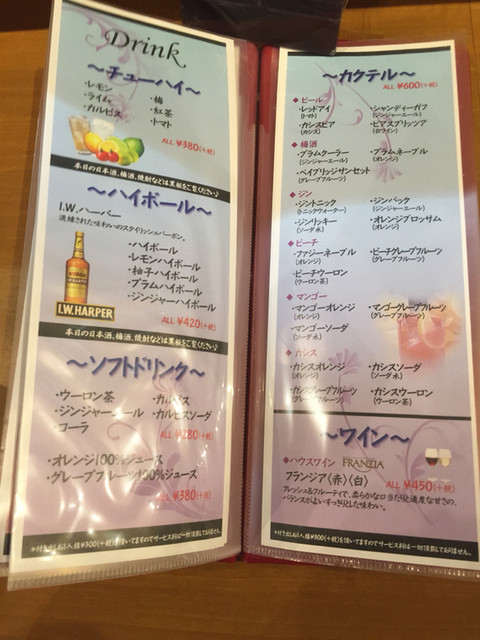 Drink
～チューハイ～
・レモン ・梅
・ライム ・紅茶
・カルピス ・トマト
ALL ¥380(+税)
本日の日本酒、梅酒、焼酎などは黒板をご覧ください♪
～ハイボール～
I.W.ハーパー
洗練された味わいのスタイリッシュバーボン。
・ハイボール
・レモンハイボール
・柚子ハイボール
・プラムハイボール
・ジンジャーハイボール
I.W.HARPER
ALL ¥420(+税)
本日の日本酒、梅酒、焼酎などは黒板をご覧ください♪
～ソフトドリンク～
・ウーロン茶 ・カルピス
・ジンジャーエール ・カルピスソーダ
・コーラ
ALL ¥280(+税)
・オレンジ100%ジュース
・グレープフルーツ100%ジュース
ALL ¥380(+税)
*付き出しお1人様¥300(+税)を頂いてますのでサービス料は一切頂戴しておりません。
～カクテル～
ALL ¥600(+税)
◆ビール
・レッドアイ ・シャンディーガフ
(トマト) (ジンジャーエール)
・カシスビア ・ビアスプリッツア
(カシス) (白ワイン)
◆梅酒
・プラムクーラー ・プラムネーブル
(ジンジャーエール) (オレンジ)
・ベイブリッジサンセット
(グレープフルーツ)
◆ジン
・ジントニック ・ジンバック
(トニックウォーター) (ジンジャーエール)
・ジンリッキー ・オレンジブロッサム
(ソーダ水) (オレンジ)
◆ピーチ
・ファジーネーブル ・ピーチグレープフルーツ
(オレンジ) (グレープフルーツ)
・ピーチウーロン
(ウーロン茶)
◆マンゴー
・マンゴーオレンジ ・マンゴーグレープフルーツ
(オレンジ) (グレープフルーツ)
・マンゴーソーダ
(ソーダ水)
◆カシス
・カシスオレンジ ・カシスソーダ
(オレンジ) (ソーダ水)
・カシスグレープフルーツ ・カシスウーロン
(グレープフルーツ) (ウーロン茶)
～ワイン～
◆ハウスワイン FRANZIA
フランジア(赤)(白) ALL ¥450(+税)
フレッシュ&フルーティで、柔らかな口当たりと適度な甘さの、
バランスがよいすっきりした味わい。
*付き出しお1人様¥300(+税)を頂いてますのでサービス料は一切頂戴しておりません。